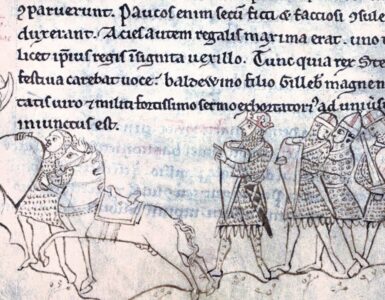 ꝯparuerunt. Paucos enim secū ficti & factiosi ꝯsule
duxerant. Acies autem regalis maxima erat. uno t
licet ipsius regis insignita uexillo. Tunc quia rex Ste
festiua carebat uoce. baldewino filio Gilleb magne n
tatis uiro & militi fortissimo sermo exhortatori ad uniu
iniunctus est.